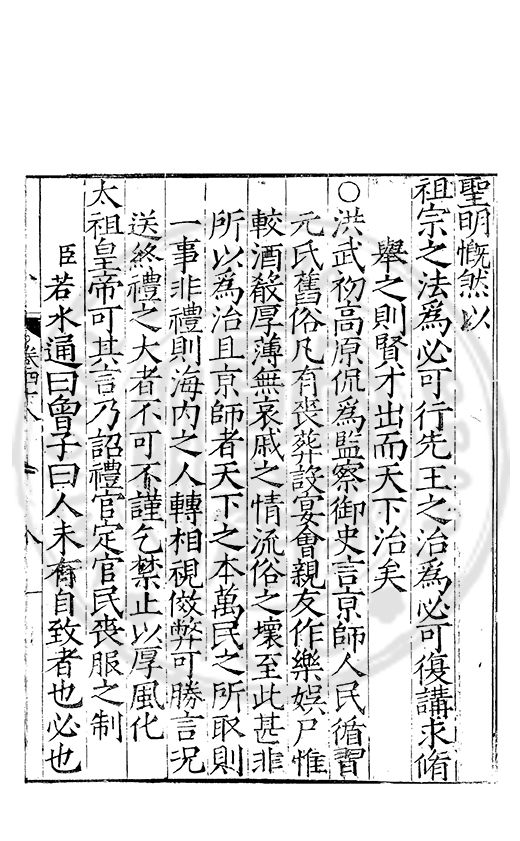 聖明慨然以
祖宗之法爲必可行先王之治爲必可復講求脩
舉之則賢才出而天下治矣
○洪武初高原侃爲監察御史言京師人民循習
元氏舊俗凡有喪葬設宴會親友作樂娛尸惟
較酒殽厚薄無哀戚之情流俗之壞至此甚非
所以爲治且京師者天下之本萬民之所取則
一事非禮則海内之人轉相視傚弊可勝言况
送終禮之大者不可不謹乞禁止以厚風化
太祖皇帝可其言乃詔禮官定官民喪服之制
臣若水通曰曾子曰人未有自致者也必也